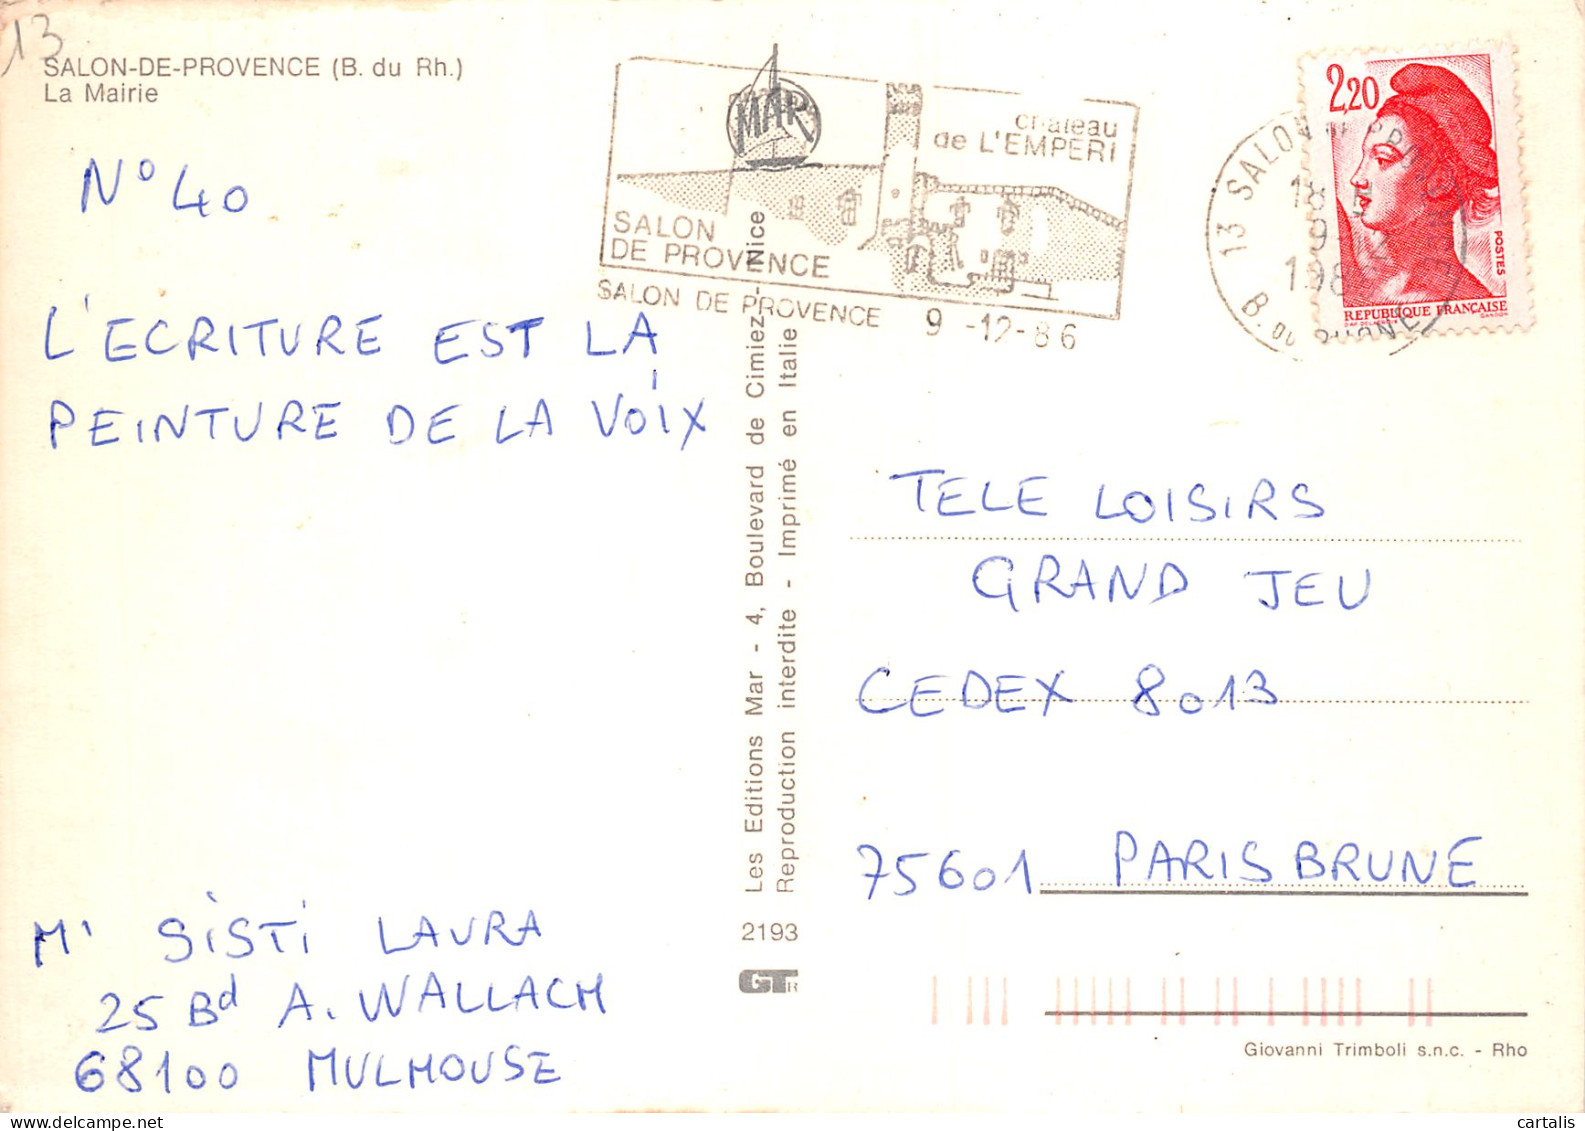 13
SALON-DE-PROVENCE (B. du Rh.)
La Mairie
N° 40
L'ECRITURE EST LA
PEINTURE DE LA VOIX
Mˡ SISTI LAURA
25 Bd A. WALLACH
68100 MULHOUSE
MAR
château
de L'EMPERI
SALON
DE PROVENCE
SALON DE PROVENCE 9 -12-86
Les Editions Mar - 4, Boulevard de Cimiez - Nice
Reproduction interdite - Imprimé en Italie
2193
GTR
13 SALON DE PROVENCE
18 H
9-12
1986
B. DU RHONE
2,20
POSTES
REPUBLIQUE FRANÇAISE
GANDON
TELE LOISIRS
GRAND JEU
CEDEX 8013
75601 PARIS BRUNE
Giovanni Trimboli s.n.c. - Rho
cartalis